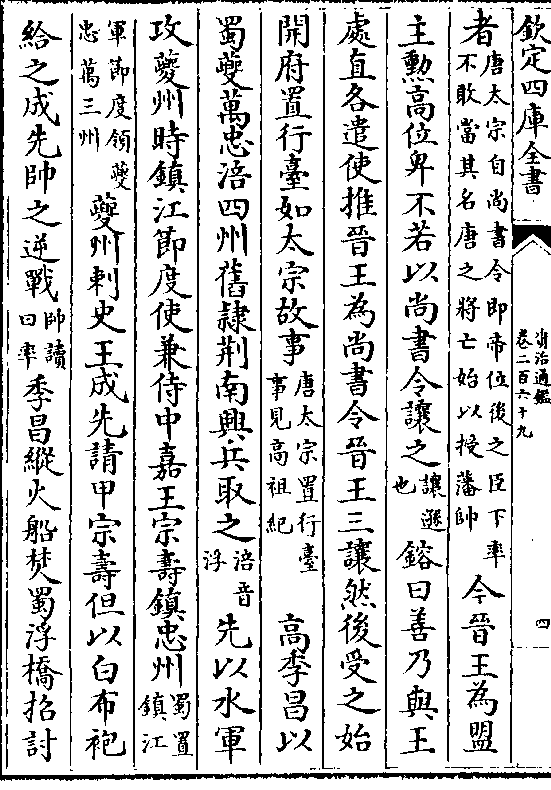 欽定四庫全書
資治通鑑
卷二百六十九
四
者唐太宗自尚書令即帝位後之臣下率不敢當其名唐之將亡始以授藩帥今晉王為盟
主勲高位卑不若以尚書令讓之讓遜也鎔曰善乃與王
處直各遣使推晉王為尚書令晉王三讓然後受之始
開府置行臺如太宗故事唐太宗置行臺事見高祖紀高季昌以
蜀夔萬忠涪四州舊隷荆南興兵取之涪音浮先以水軍
攻夔州時鎮江節度使兼侍中嘉王宗壽鎮忠州蜀置鎮江
軍節度領夔忠萬三州夔州刺史王成先請甲宗壽但以白布袍
給之成先帥之逆戰帥讀曰率季昌縱火船焚蜀浮橋招討